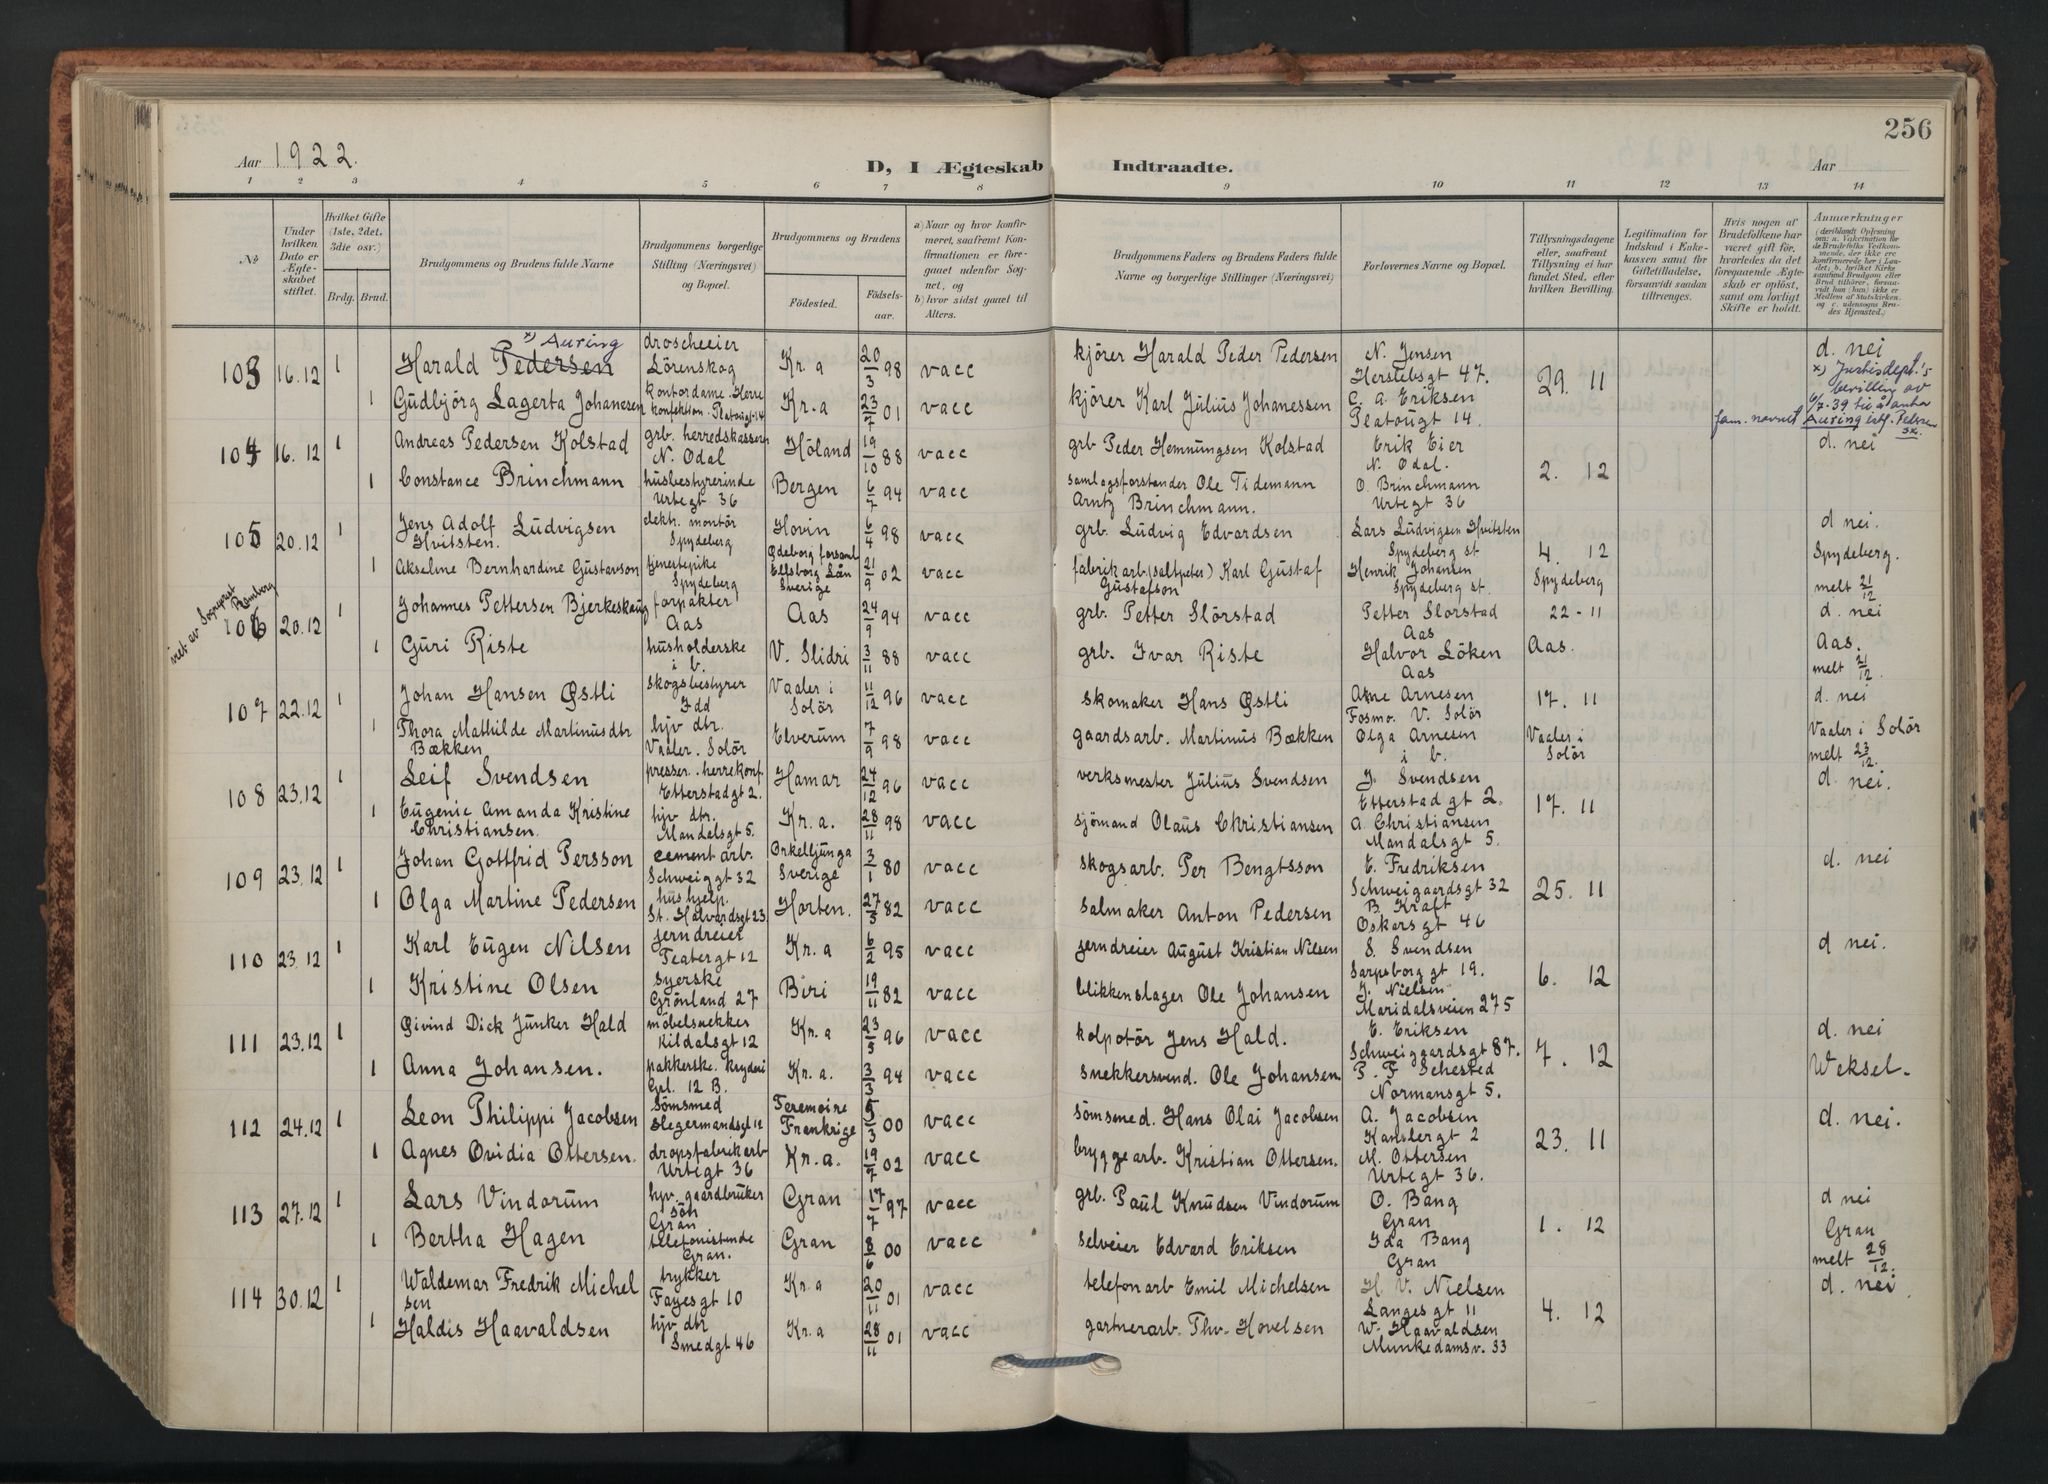 256
Aar 1922.
D, I Ægteskab Indtraadte.
Aar
1 2 3 4 5 6 7 8 9 10 11 12 13 14
No
Under hvilken Dato er Ægteskabet stiftet.
Hvilket Gifte (1ste, 2det, 3die osv.)
Brdg. Brud.
Brudgommens og Brudens fulde Navne
Brudgommens borgerlige Stilling (Næringsvei) og Bopæl.
Brudgommens og Brudens
Födested. Födselsaar.
a) Naar og hvor konfirmeret, saafremt Konfirmationen er foregaaet udenfor Sognet, og
b) hvor sidst gaaet til Alters.
Brudgommens Faders og Brudens Faders fulde Navne og borgerlige Stillinger (Næringsvei)
Forlovernes Navne og Bopæl.
Tillysningsdagene eller, saafremt Tillysning ei har fundet Sted, efter hvilken Bevilling.
Legitimation for Indskud i Enkekassen samt for Giftetilladelse, forsaavidt saadan tiltrænges.
Hvis nogen af Brudefolkene har været gift för, hvorledes da det foregaaende Ægteskab er oplöst, samt om lovligt Skifte er holdt.
Anmærkninger (deriblandt Oplysning om: a. Vakcination for de Brudefolks Vedkommende, der ikke ere konfirmerede her i Landet; b. hvilket Kirkesamfund Brudgom eller Brud tilhörer, forsaavidt han (hun) ikke er Medlem af Statskirken, og c. udensogns Brudes Hjemsted.)
103 16.12 1 Harald Pedersen x) Auring droscheeier Lörenskog Kr.a 20/3 98 vacc kjörer Harald Peder Pedersen N. Jensen Herslebsgt 47. 29. 11 d. nei
x) Justisdept.'s bevilling av 6/7-39 til å anta fam.navnet Auring istf. Pedersen
1 Gudbjörg Lagerta Johanesen kontordame. Herrekonfektion. Platougt 14 Kr.a 23/7 01 vacc kjörer Karl Julius Johanessen C. A Eriksen Platougt 14.
104 16. 12 1 Andreas Pedersen Kolstad grb. herredskasserer N. Odal Höland 19/10 88 vacc grb Peder Hemnungsen Kolstad Erik Eier N. Odal. 2. 12 d. nei
1 Constance Brinchmann husbestyrerinde Urtegt 36 Bergen 6/7 94 vacc samlagsforstander Ole Tidemann Arntz Brinchmann. O. Brinchmann Urtegt 36
105 20.12 1 Jens Adolf Ludvigsen Hvitsten. elektr. montör Spydeberg Hovin 6/4 98 vacc grb. Ludvig Edvardsen Lars Ludvigsen Hvitsten Spydeberg st 4. 12 d nei.
1 Akseline Bernhardine Gustavson tjenestepike Spydeberg Ödeborg forsaml Elfsborg Län Sverige 21/9 02 vacc fabrikarb (saltpeter) Karl Gustaf Gustafson Henrik Johansen Spydeberg st. Spydeberg Spydeberg. melt 21/12
viet av Sogneprest Ramberg
106 20.12 1 Johannes Pettersen Bjerkeskaug forpakter Aas Aas 24/9 94 vacc grb. Petter Slörstad Petter Slorstad Aas 22-11 d. nei
1 Guri Riste husholderske i b. V. Slidri 3/11 88 vacc grb. Ivar Riste Halvor Löken Aas Aas. Aas. melt 21/12
107 22.12 1 Johan Hansen Østli skogsbestyrer Idd Vaaler i Solör 11/12 96 vacc skomaker Hans Østli Arne Arnesen Fosmo. V. Solör 17. 11 d. nei
1 Thora Mathilde Martinusdtr Bækken hjv dtr. Vaaler. Solör Elverum 7/9 98 vacc gaardsarb. Martinus Bækken Olga Arnesen i b. Vaaler i Solör Vaaler i Solör melt 23/12
108 23.12 1 Leif Svendsen presser. herrekonf. Etterstadgt 2. Hamar 24/12 96 vacc verksmester Julius Svendsen J. Svendsen Etterstadgt 2. 17. 11 d. nei.
1 Eugenie Amanda Kristine Christiansen. hjv dtr. Mandalsgt 5. Kr.a. 28/11 98 vacc sjömand Olaus Christiansen A. Christiansen Mandalsgt 5.
109 23.12 1 Johan Gottfrid Persson cement arb. Schweiggt 32 Orkelljunga Sverige 3/1 80 vacc skogsarb. Per Bengtsson E. Fredriksen Schweigaardsgt 32 25. 11 d. nei
1 Olga Martine Pedersen hushjelp. St. Halvardsgt 23 Horten. 27/3 82 vacc salmaker Anton Pedersen B. Kraft Oskarsgt 46
110 23.12 1 Karl Eugen Nilsen jerndreier Teatergt 12 Kr.a 6/2 95 vacc jerndreier August Kristian Nilsen S. Svendsen Sarpsborggt 19. 6. 12 d nei.
1 Kristine Olsen syerske Grönland 27 Biri 19/11 82 vacc blikkenslager Ole Johansen J. Nielsen Maridalsveien 275
111 23.12 1 Øivind Dick Junker Hald möbelsnekker Kildalsgt 12 Kr.a 23/5 96 vacc kolpotör Jens Hald. E. Eriksen Schweigaardsgt 87. 7. 12 d. nei
1 Anna Johansen. pakkerske. kryderi Grl. 12 B. Kr.a. 3/3 94 vacc snekkersvend. Ole Johansen P. F Sehested Normansgt 5. Veksel.
112 24.12 1 Leon Philippi Jacobsen Sömsmed Slegermandsgt 12 Feremoire Frankrige 5/3 00 vacc sömsmed. Hans Olai Jacobsen A. Jacobsen Kanslergt 2 23. 11 d. nei.
1 Agnes Ovidia Ottersen. dropsfabrikarb Urtegt 36 Kr.a. 19/7 02 vacc bryggearb. Kristian Ottersen. M. Ottersen Urtegt 36.
113 27.12 1 Lars Vindorum hjv. gaardbruker sön Gran Gran 17/7 97 vacc grb. Paul Knudsen Vindorum O. Bang Gran 1. 12 d nei
1 Bertha Hagen telefonistende Gran. Gran 8/6 00 vacc selveier Edvard Eriksen Ida Bang Gran Gran melt 28/12.
114 30.12 1 Waldemar Fredrik Michelsen trykker Fayesgt 10 Kr.a 20/11 01 vacc telefonarb Emil Michelsen H. V. Nielsen Langesgt 11 4. 12 d. nei
1 Haldis Haavaldsen hjv dtr Smedgt 46 Kr.a 28/11 01 vacc gartnerarb. Thv. Hovelsen W. Haavaldsen Munkedamsv. 33